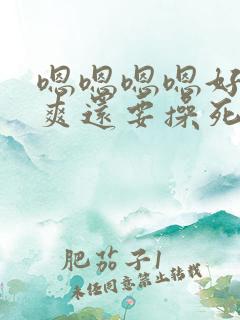 嗯嗯嗯嗯好
爽还要操死
肥茄子1
未经同意禁止转载